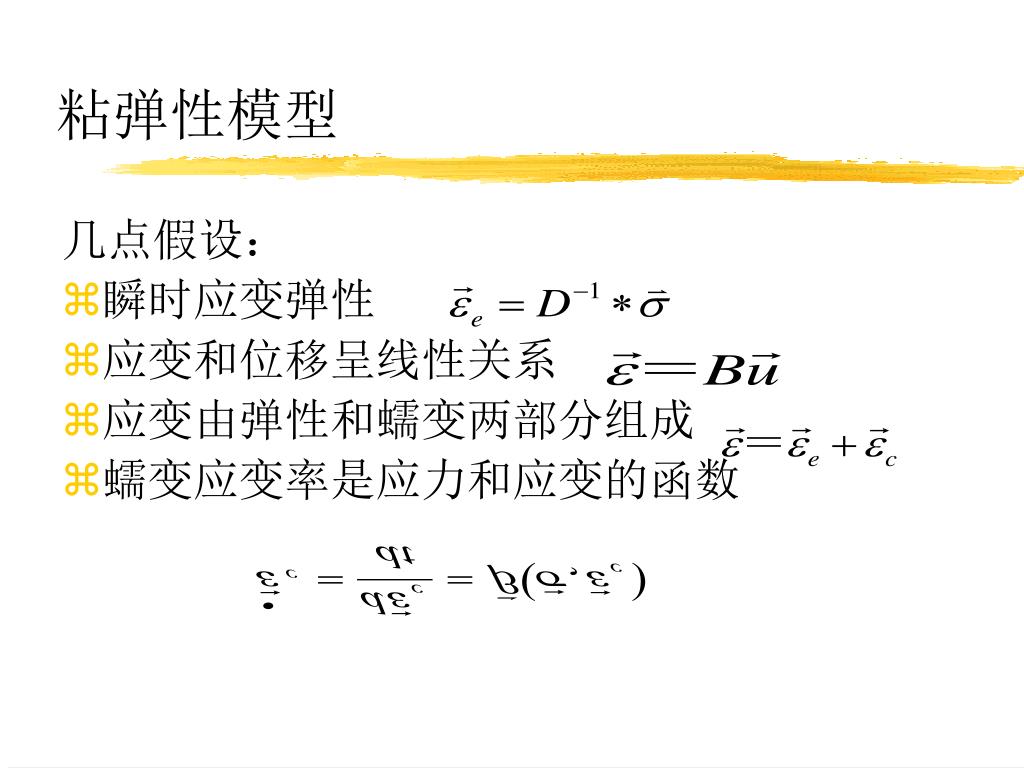 粘弹性模型
几点假设：
⌘瞬时应变弹性 $\vec{\varepsilon}_e = D^{-1} * \vec{\sigma}$
⌘应变和位移呈线性关系 $\vec{\varepsilon} = B\vec{u}$
⌘应变由弹性和蠕变两部分组成 $\vec{\varepsilon} = \vec{\varepsilon}_e + \vec{\varepsilon}_c$
⌘蠕变应变率是应力和应变的函数
$\dot{\vec{\varepsilon}}^c = \frac{d\vec{\varepsilon}^c}{dt} = \vec{\beta}(\vec{\sigma}, \vec{\varepsilon}^c)$